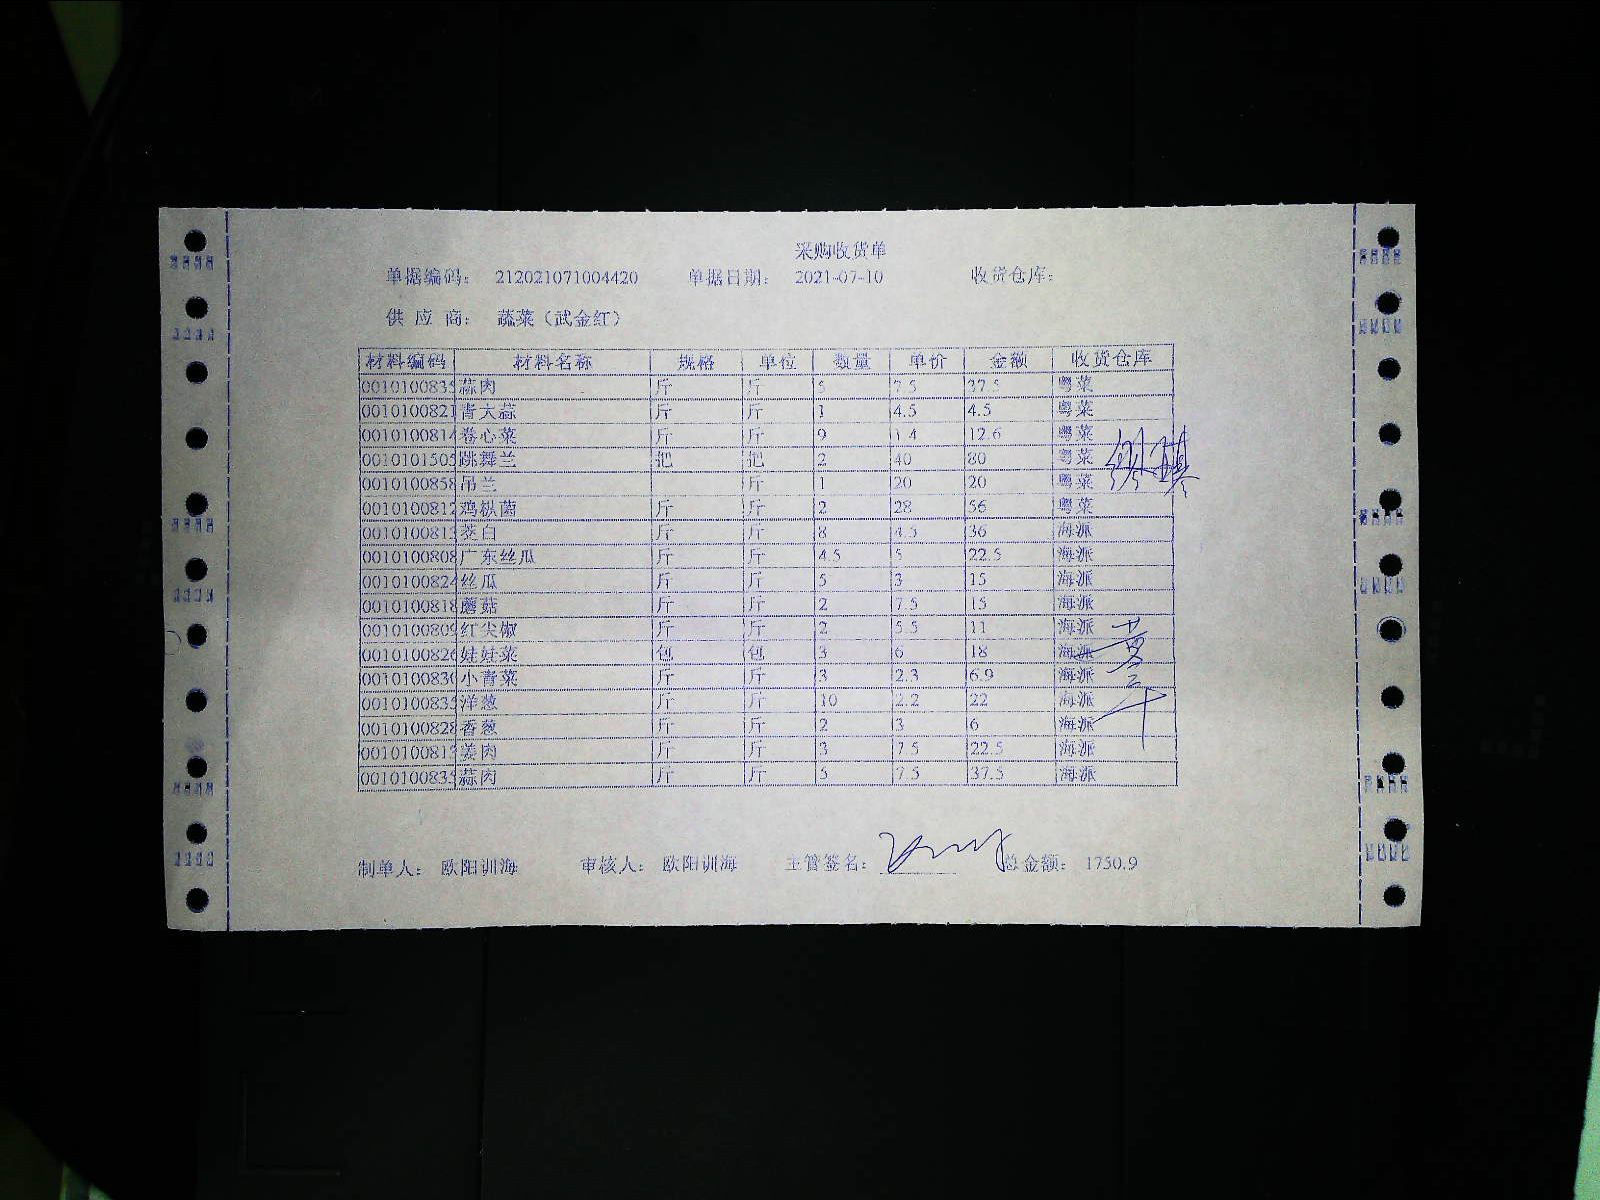 采购收货单
单据编码： 212021071004420 单据日期： 2021-07-10 收货仓库：
供 应 商： 蔬菜（武金红）
材料编码 材料名称 规格 单位 数量 单价 金额 收货仓库
0010100835 蒜肉 斤 斤 5 7.5 37.5 粤菜
0010100821 青大蒜 斤 斤 1 4.5 4.5 粤菜
0010100814 卷心菜 斤 斤 9 1.4 12.6 粤菜
0010101505 跳舞兰 把 把 2 40 80 粤菜
0010100858 吊兰 斤 1 20 20 粤菜
0010100812 鸡枞菌 斤 斤 2 28 56 粤菜
001010081 茭白 斤 斤 8 4.5 36 海派
0010100808 广东丝瓜 斤 斤 4.5 5 22.5 海派
0010100824 丝瓜 斤 斤 5 3 15 海派
0010100818 蘑菇 斤 斤 2 7.5 15 海派
0010100809 红尖椒 斤 斤 2 5.5 11 海派
0010100826 娃娃菜 包 包 3 6 18 海派
0010100830 小青菜 斤 斤 3 2.3 6.9 海派
0010100835 洋葱 斤 斤 10 2.2 22 海派
0010100828 香葱 斤 斤 2 3 6 海派
001010081 姜肉 斤 斤 3 7.5 22.5 海派
0010100835 蒜肉 斤 斤 5 7.5 37.5 海派
制单人： 欧阳训海 审核人： 欧阳训海 主管签名： 总金额： 1750.9